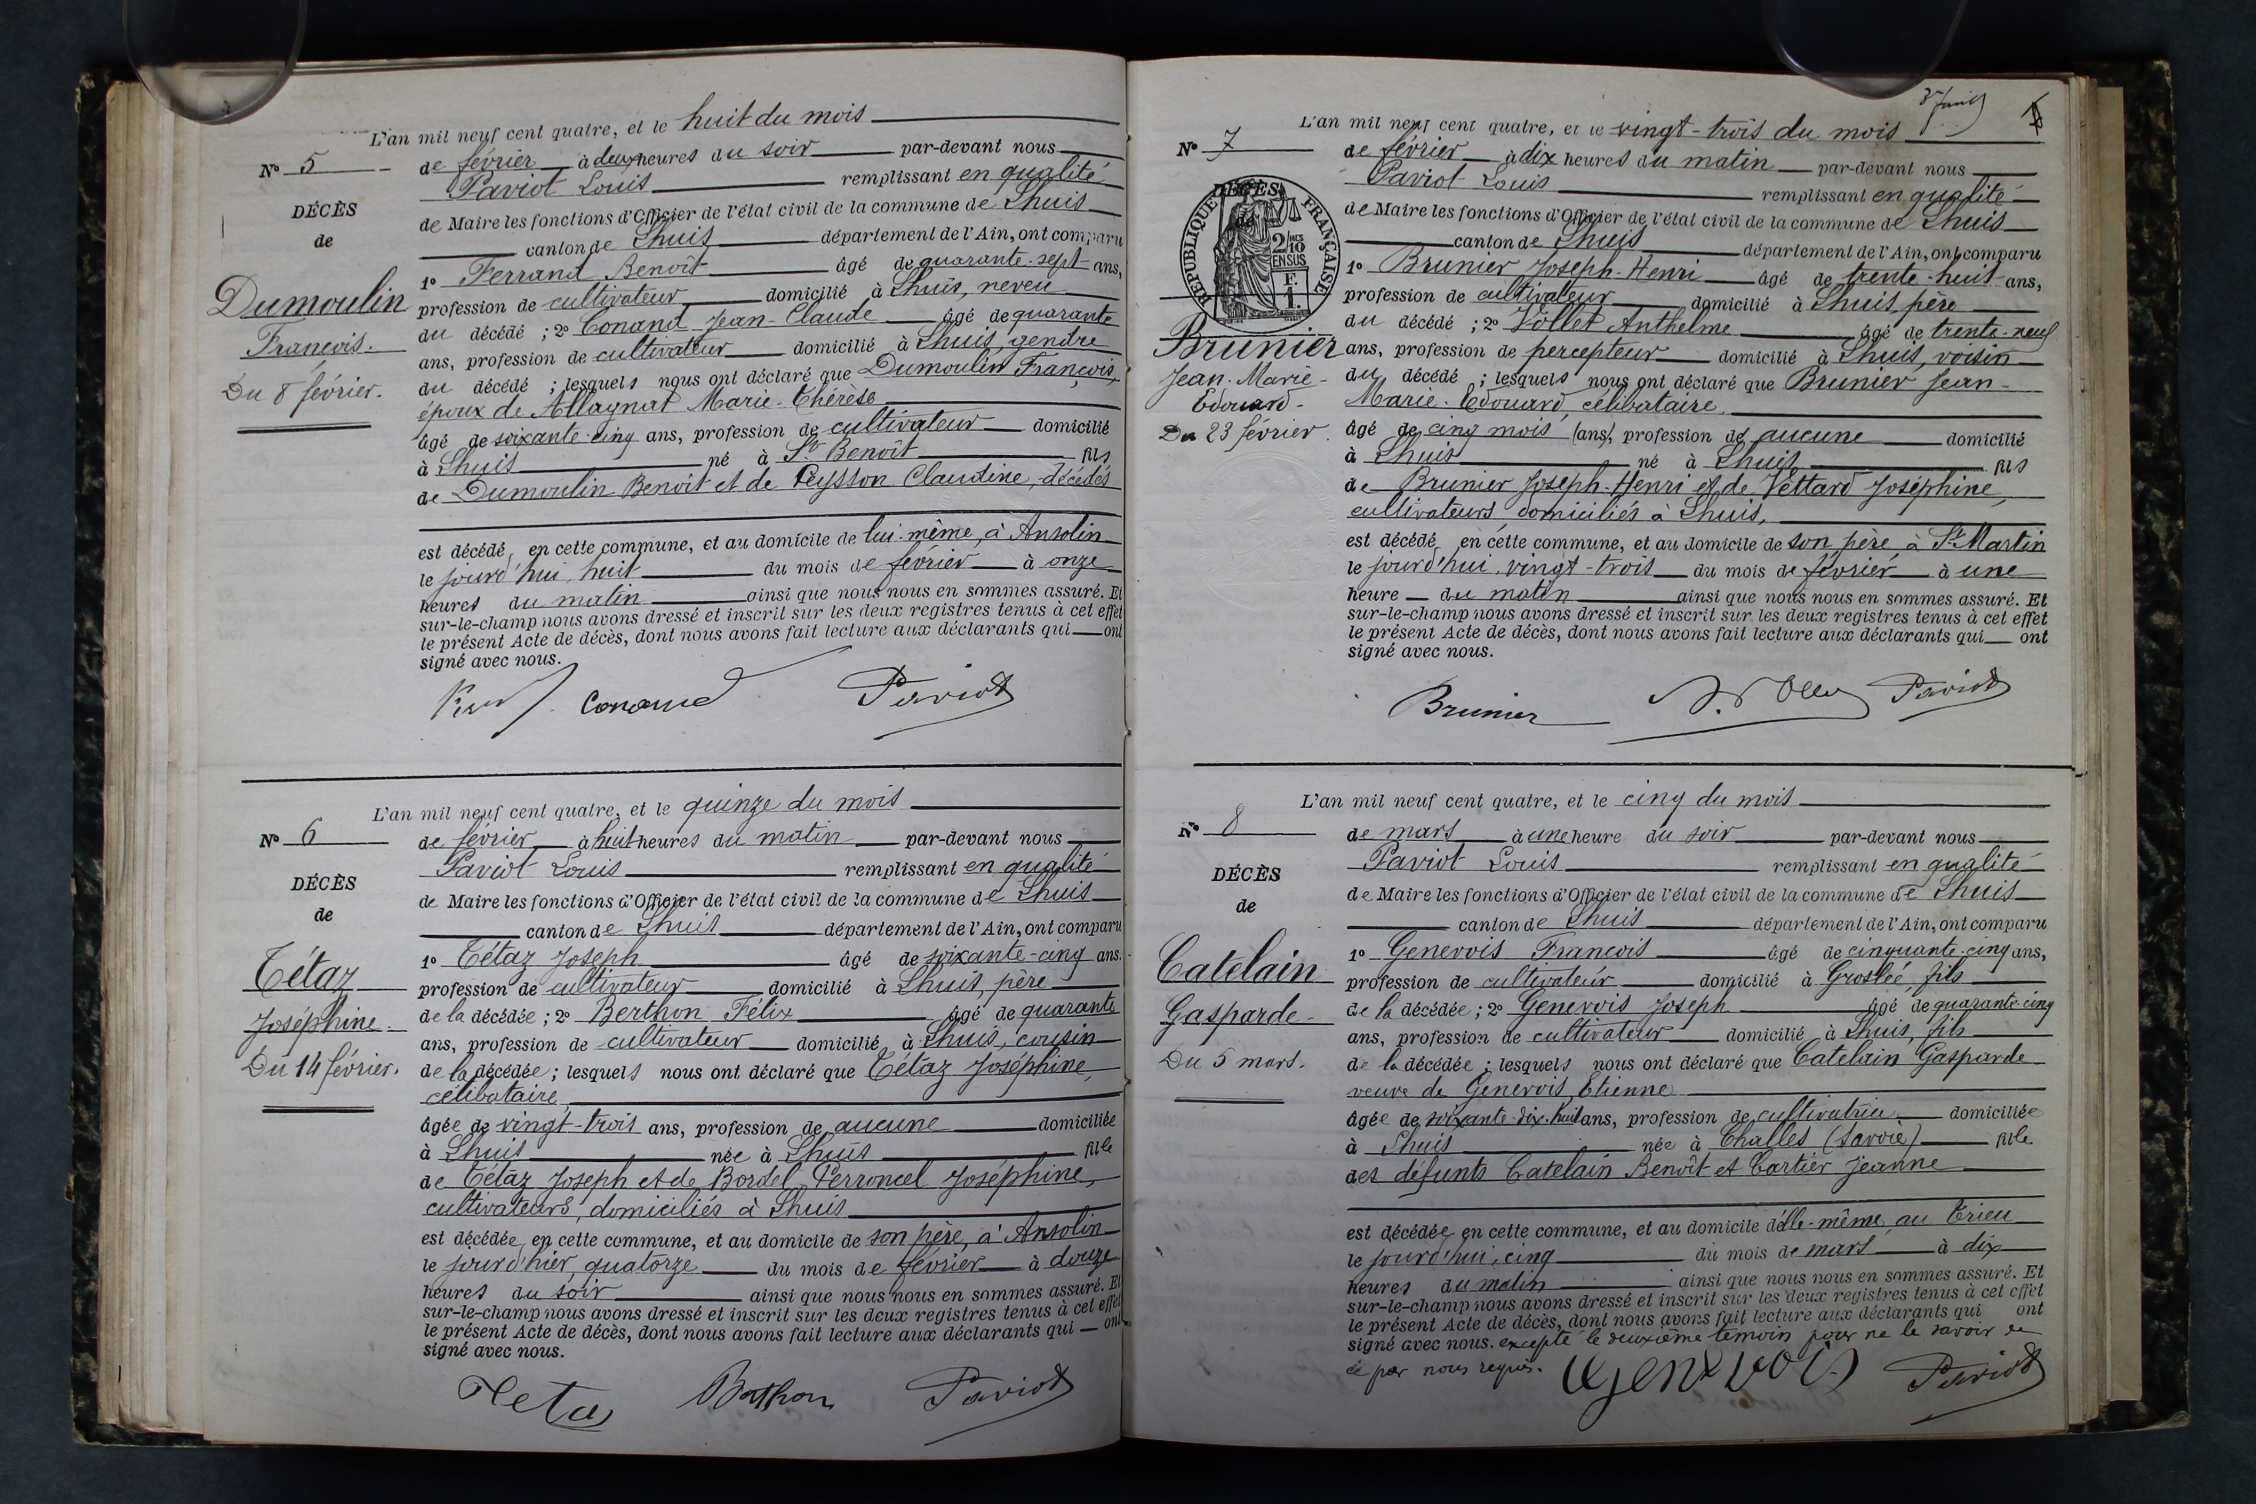 L'an mil neuf cent quatre, et le huit du mois
N° 5
de février à deux heures du soir par-devant nous
Paviot Louis remplissant en qualité
DÉCÈS
de Maire les fonctions d'Officier de l'état civil de la commune de Lhuis
de
canton de Lhuis département de l'Ain, ont comparu
1° Ferrand Benoît âgé de quarante-sept ans,
Dumoulin
profession de cultivateur domicilié à Lhuis, neveu
du décédé ; 2° Conand Jean-Claude âgé de quarante
François.
ans, profession de cultivateur domicilié à Lhuis, gendre
Du 8 février.
du décédé ; lesquels nous ont déclaré que Dumoulin François,
époux de Allagnat Marie-Thérèse
âgé de soixante-cinq ans, profession de cultivateur domicilié
à Lhuis né à St Benoît fils
de Dumoulin Benoît et de Peysson Claudine, décédés
est décédé en cette commune, et au domicile de lui-même, à Ansolin
le jourd'hui, huit du mois de février à onze
heures du matin ainsi que nous nous en sommes assuré. Et
sur-le-champ nous avons dressé et inscrit sur les deux registres tenus à cet effet
le présent Acte de décès, dont nous avons fait lecture aux déclarants qui ont
signé avec nous.
Conand Paviot
L'an mil neuf cent quatre, et le quinze du mois
N° 6
de février à huit heures du matin par-devant nous
Paviot Louis remplissant en qualité
DÉCÈS
de Maire les fonctions d'Officier de l'état civil de la commune de Lhuis
de
canton de Lhuis département de l'Ain, ont comparu
1° Tétaz Joseph âgé de soixante-cinq ans.
Tétaz
profession de cultivateur domicilié à Lhuis, père
Joséphine.
de la décédée ; 2° Berthon Félix âgé de quarante
ans, profession de cultivateur domicilié à Lhuis, cousin
Du 14 février.
de la décédée ; lesquels nous ont déclaré que Tétaz Joséphine,
célibataire,
âgée de vingt-trois ans, profession de aucune domiciliée
à Lhuis née à Lhuis fille
de Tétaz Joseph et de Bordel Perroncel Joséphine,
cultivateurs, domiciliés à Lhuis
est décédée en cette commune, et au domicile de son père, à Ansolin
le jourd'hier, quatorze du mois de février à douze
heures du soir ainsi que nous nous en sommes assuré. Et
sur-le-champ nous avons dressé et inscrit sur les deux registres tenus à cet effet
le présent Acte de décès, dont nous avons fait lecture aux déclarants qui ont
signé avec nous.
Teta Berthon Paviot
L'an mil neuf cent quatre, et le vingt-trois du mois
N° 7
de février à dix heures du matin par-devant nous
Paviot Louis remplissant en qualité
DÉCÈS
de
RÉPUBLIQUE FRANÇAISE
2/10 EN SUS
F. 1.
de Maire les fonctions d'Officier de l'état civil de la commune de Lhuis
canton de Lhuis département de l'Ain, ont comparu
1° Brunier Joseph-Henri âgé de trente-huit ans,
profession de cultivateur domicilié à Lhuis, père
du décédé ; 2° Vollet Anthelme âgé de trente-neuf
Brunier
ans, profession de percepteur domicilié à Lhuis, voisin
Jean-Marie-
du décédé ; lesquels nous ont déclaré que Brunier Jean-
Edouard-
Marie-Edouard, célibataire,
Du 23 février.
âgé de cinq mois (ans), profession de aucune domicilié
à Lhuis né à Lhuis fils
de Brunier Joseph-Henri et de Vettard Joséphine,
cultivateurs, domiciliés à Lhuis,
est décédé en cette commune, et au domicile de son père à St Martin
le jourd'hui, vingt-trois du mois de février à une
heure du matin ainsi que nous nous en sommes assuré. Et
sur-le-champ nous avons dressé et inscrit sur les deux registres tenus à cet effet
le présent Acte de décès, dont nous avons fait lecture aux déclarants qui ont
signé avec nous.
Brunier Paviot
L'an mil neuf cent quatre, et le cinq du mois
N° 8
de mars à une heure du soir par-devant nous
Paviot Louis remplissant en qualité
DÉCÈS
de Maire les fonctions d'Officier de l'état civil de la commune de Lhuis
de
canton de Lhuis département de l'Ain, ont comparu
1° Genevois François âgé de cinquante-cinq ans,
Catelain
profession de cultivateur domicilié à Groslée, fils
Gasparde-
de la décédée ; 2° Genevois Joseph âgé de quarante-cinq
ans, profession de cultivateur domicilié à Lhuis, fils
Du 5 mars.
de la décédée ; lesquels nous ont déclaré que Catelain Gasparde
veuve de Genevois Etienne
âgée de soixante-dix-huit ans, profession de cultivatrice domiciliée
à Lhuis née à Challes (Savoie) fille
des défunts Catelain Benoît et Cartier Jeanne
est décédée en cette commune, et au domicile d'elle-même, au Crieu
le jourd'hui, cinq du mois de mars à dix
heures du matin ainsi que nous nous en sommes assuré. Et
sur-le-champ nous avons dressé et inscrit sur les deux registres tenus à cet effet
le présent Acte de décès, dont nous avons fait lecture aux déclarants qui ont
signé avec nous. excepté le deuxième témoin pour ne le savoir de
ce par nous requis.
Genevois Paviot